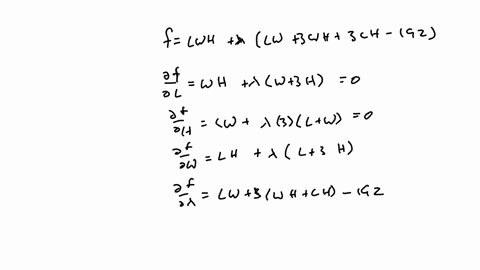 f = LWH + λ (LW + 3WH + 3LH - 192)
∂f/∂L = WH + λ(W+3H) = 0
∂f/∂H = LW + λ(3)(L+W) = 0
∂f/∂W = LH + λ(L+3H)
∂f/∂λ = LW + 3(WH+LH) - 192